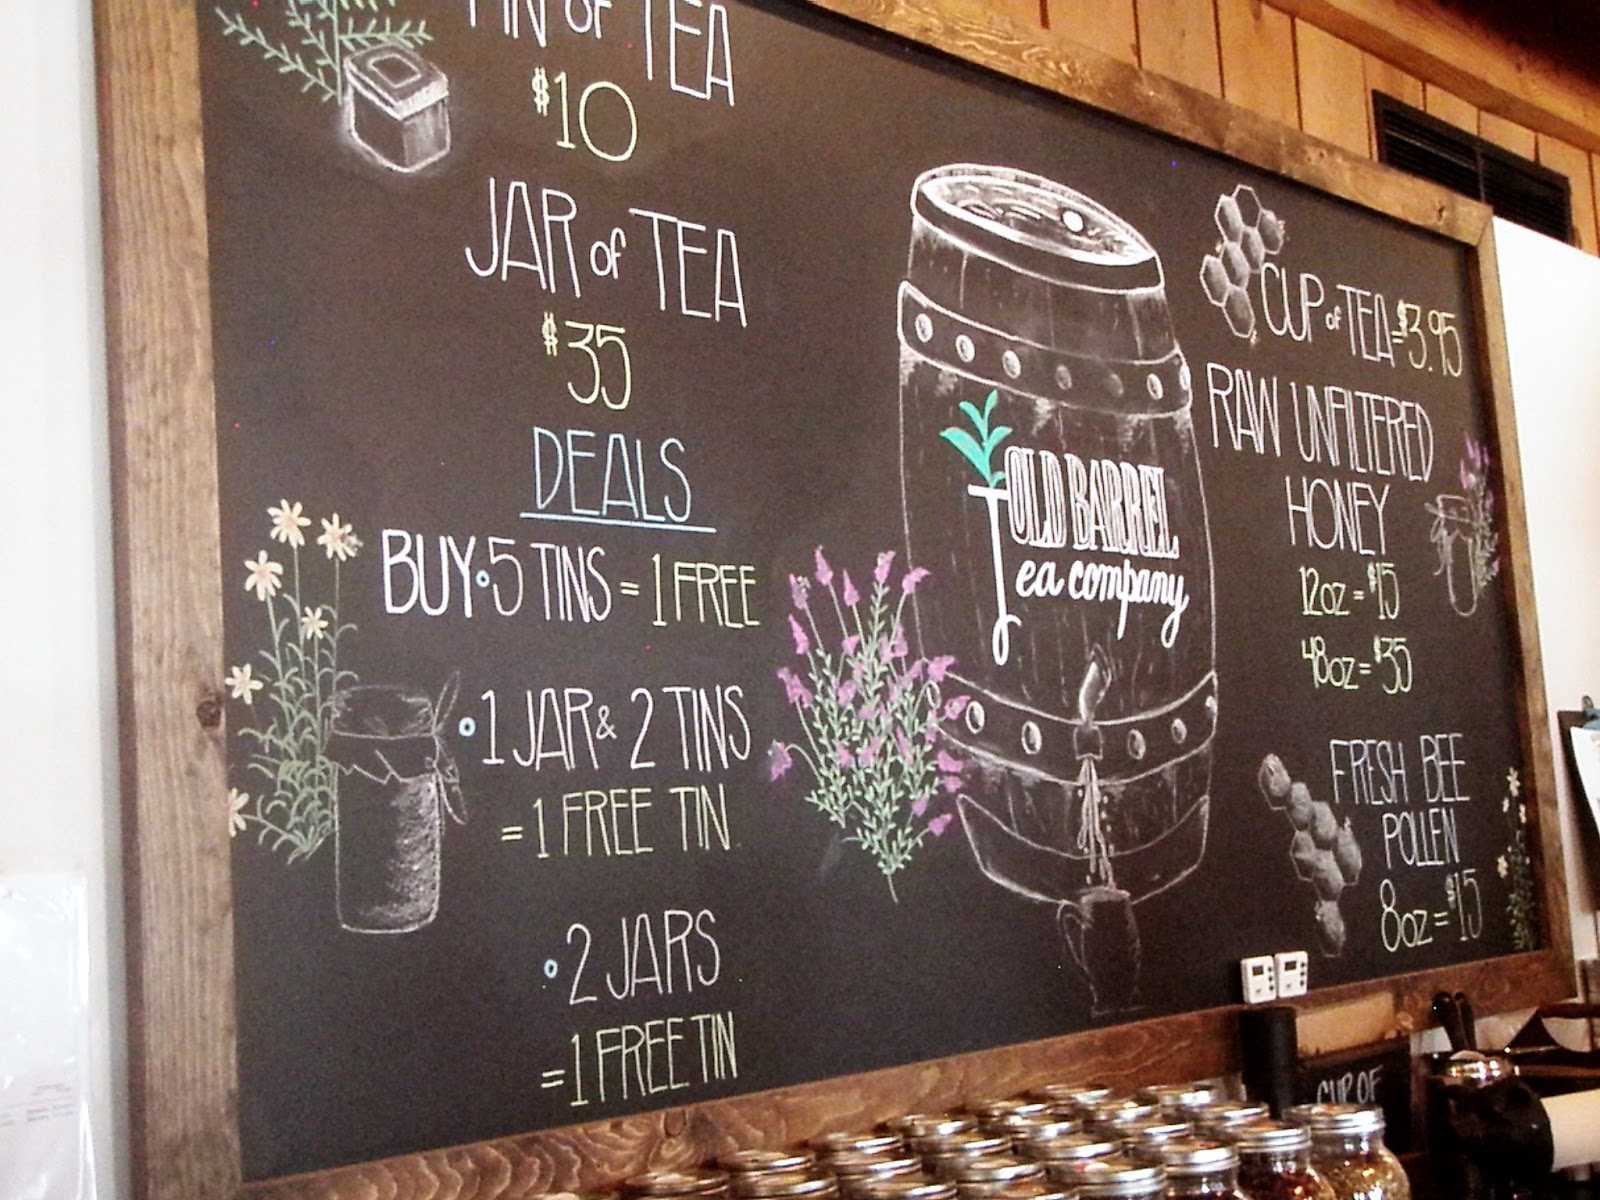 TIN of TEA
$10
JAR of TEA
$35
DEALS
BUY • 5 TINS = 1 FREE
• 1 JAR & 2 TINS
= 1 FREE TIN
• 2 JARS
= 1 FREE TIN
OLD BARREL
Tea company
CUP of TEA = $3.95
RAW UNFILTERED
HONEY
12oz = $15
48oz = $35
FRESH BEE
POLLEN
8oz = $15
CUP OF